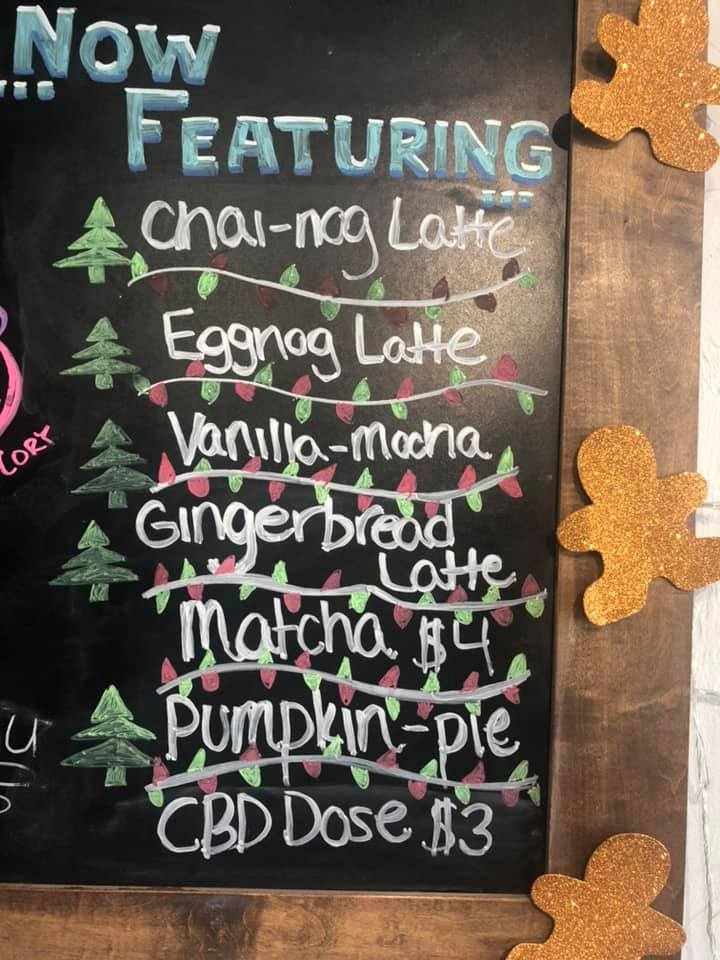 Now
Featuring
Chai-nog Latte
Eggnog Latte
Vanilla-mocha
Gingerbread
Latte
Matcha $4
Pumpkin-pie
CBD Dose $3
CORY